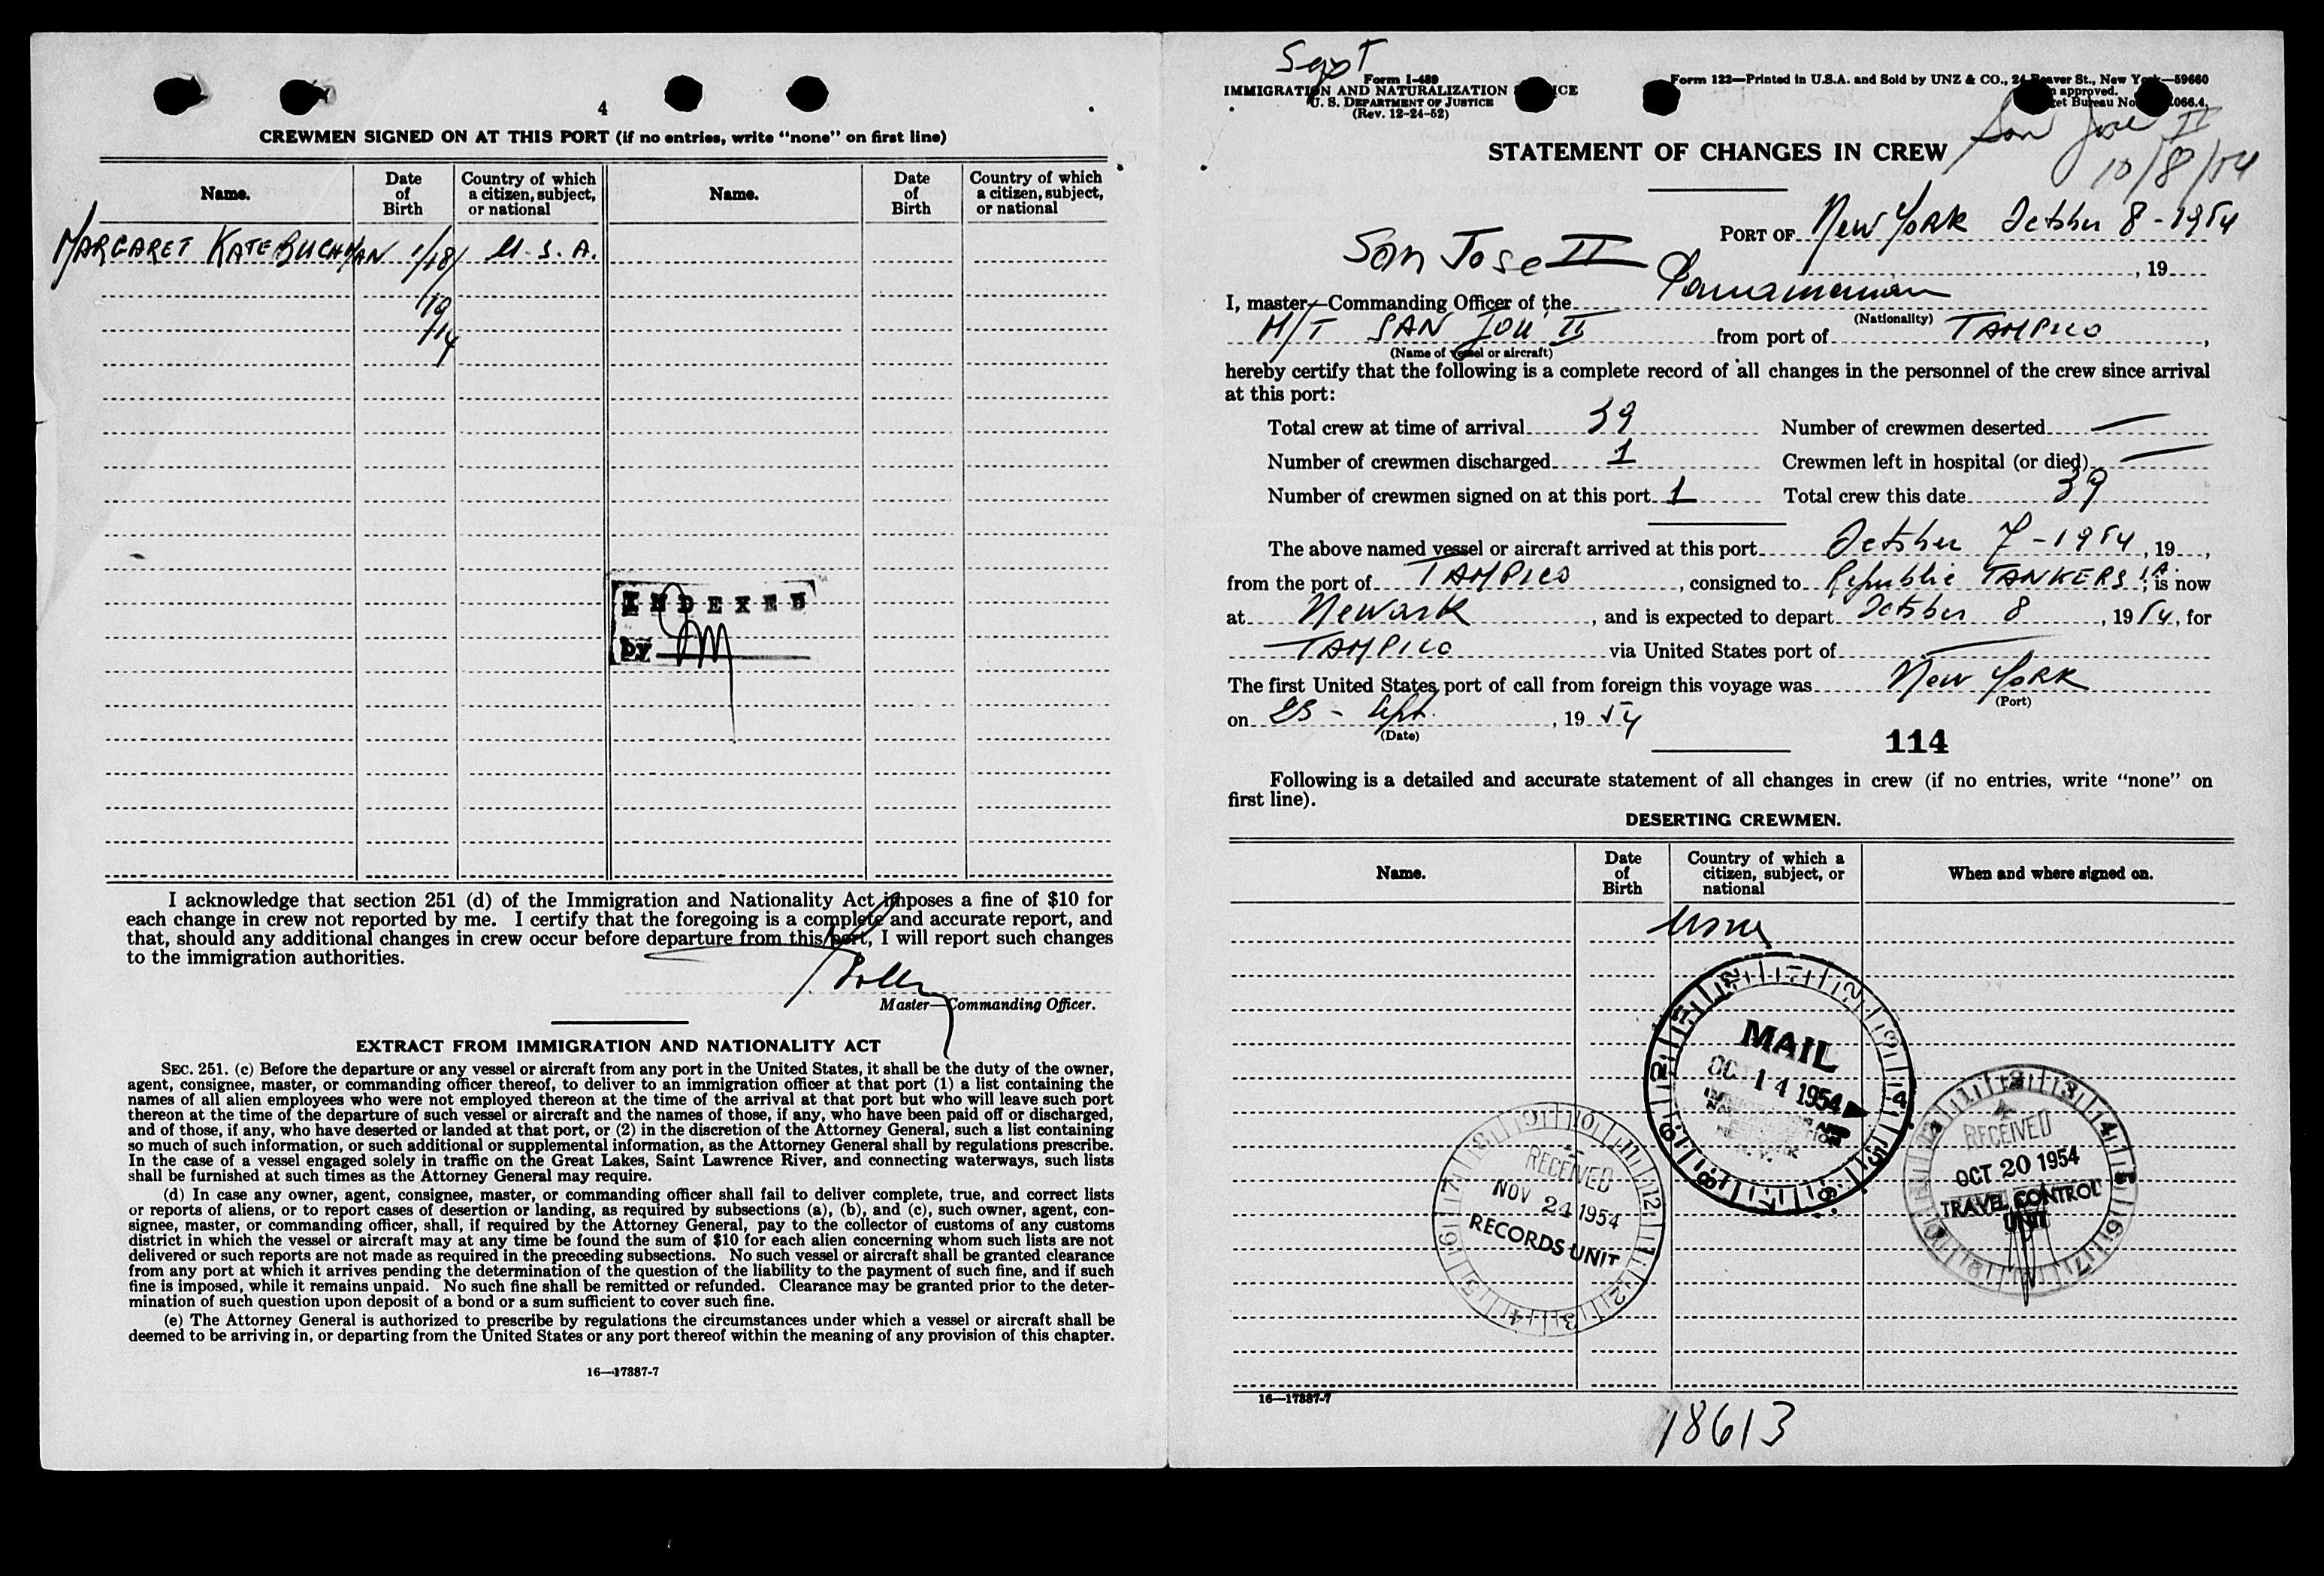 4
CREWMEN SIGNED ON AT THIS PORT (if no entries, write "none" on first line)
Name. Date of Birth Country of which a citizen, subject, or national Name. Date of Birth Country of which a citizen, subject, or national
MARGARET KATE BUCHMAN 1/18/ U.S.A.
/19
/14
INDEXED
by
I acknowledge that section 251 (d) of the Immigration and Nationality Act imposes a fine of $10 for
each change in crew not reported by me. I certify that the foregoing is a complete and accurate report, and
that, should any additional changes in crew occur before departure from this port, I will report such changes
to the immigration authorities.
Master—Commanding Officer.
EXTRACT FROM IMMIGRATION AND NATIONALITY ACT
SEC. 251. (c) Before the departure or any vessel or aircraft from any port in the United States, it shall be the duty of the owner,
agent, consignee, master, or commanding officer thereof, to deliver to an immigration officer at that port (1) a list containing the
names of all alien employees who were not employed thereon at the time of the arrival at that port but who will leave such port
thereon at the time of the departure of such vessel or aircraft and the names of those, if any, who have been paid off or discharged,
and of those, if any, who have deserted or landed at that port, or (2) in the discretion of the Attorney General, such a list containing
so much of such information, or such additional or supplemental information, as the Attorney General shall by regulations prescribe.
In the case of a vessel engaged solely in traffic on the Great Lakes, Saint Lawrence River, and connecting waterways, such lists
shall be furnished at such times as the Attorney General may require.
(d) In case any owner, agent, consignee, master, or commanding officer shall fail to deliver complete, true, and correct lists
or reports of aliens, or to report cases of desertion or landing, as required by subsections (a), (b), and (c), such owner, agent, con-
signee, master, or commanding officer, shall, if required by the Attorney General, pay to the collector of customs of any customs
district in which the vessel or aircraft may at any time be found the sum of $10 for each alien concerning whom such lists are not
delivered or such reports are not made as required in the preceding subsections. No such vessel or aircraft shall be granted clearance
from any port at which it arrives pending the determination of the question of the liability to the payment of such fine, and if such
fine is imposed, while it remains unpaid. No such fine shall be remitted or refunded. Clearance may be granted prior to the deter-
mination of such question upon deposit of a bond or a sum sufficient to cover such fine.
(e) The Attorney General is authorized to prescribe by regulations the circumstances under which a vessel or aircraft shall be
deemed to be arriving in, or departing from the United States or any port thereof within the meaning of any provision of this chapter.
16—17887-7
Sept
Form I-489
IMMIGRATION AND NATURALIZATION
U. S. DEPARTMENT OF JUSTICE
(Rev. 12-24-52)
Form 122—Printed in U.S.A. and Sold by UNZ & CO., 24 Beaver St., New York—59660
approved.
Bureau No. 066.4.
San Jose II
10/8/54
STATEMENT OF CHANGES IN CREW
PORT OF New York October 8 - 1954
, 19
San Jose II
I, master—Commanding Officer of the Panamanian
(Nationality)
M/T SAN JOSE II from port of TAMPICO,
(Name of vessel or aircraft)
hereby certify that the following is a complete record of all changes in the personnel of the crew since arrival
at this port:
Total crew at time of arrival 39 Number of crewmen deserted —
Number of crewmen discharged 1 Crewmen left in hospital (or died) —
Number of crewmen signed on at this port 1 Total crew this date 39
The above named vessel or aircraft arrived at this port October 7 - 1954, 19 ,
from the port of TAMPICO, consigned to Republic TANKERS S.A.; is now
at Newark, and is expected to depart October 8, 1954, for
TAMPICO via United States port of —
The first United States port of call from foreign this voyage was New York
(Port)
on 23 - Sept., 19 54
(Date)
114
Following is a detailed and accurate statement of all changes in crew (if no entries, write "none" on
first line).
DESERTING CREWMEN.
Name. Date of Birth Country of which a citizen, subject, or national When and where signed on.
None
MAIL
OCT 14 1954
RECEIVED
NOV 24 1954
RECORDS UNIT
RECEIVED
OCT 20 1954
TRAVEL CONTROL
UNIT
16—17887-7
18613